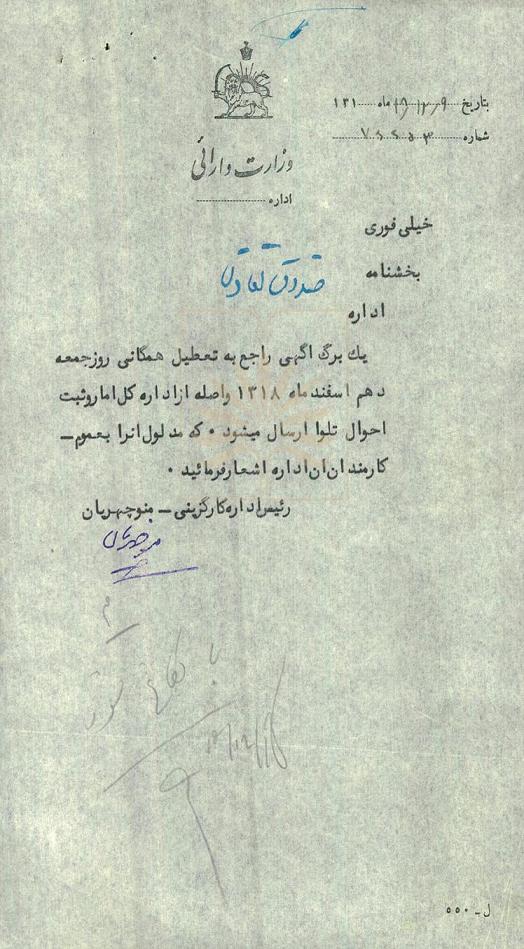 بتاریخ ۹-۱۲-۱۸ ماه ۱۳۱
شماره ۷۶۶۵۳
وزارت دارائی
اداره
خیلی فوری
بخشنامه صندوق تقاعد
اداره
یك برگ اگهی راجع به تعطیل همگانی روزجمعه
دهم اسفندماه ۱۳۱۸ واصله ازاداره کل اماروثبت
احوال تلوا ارسال میشود ۰ که مدلول انرا بعموم ـ
کارمندان ان اداره اشعارفرمائید ۰
رئیس اداره کارگزینی ـ منوچهریان
ل ـ ۵۵۰